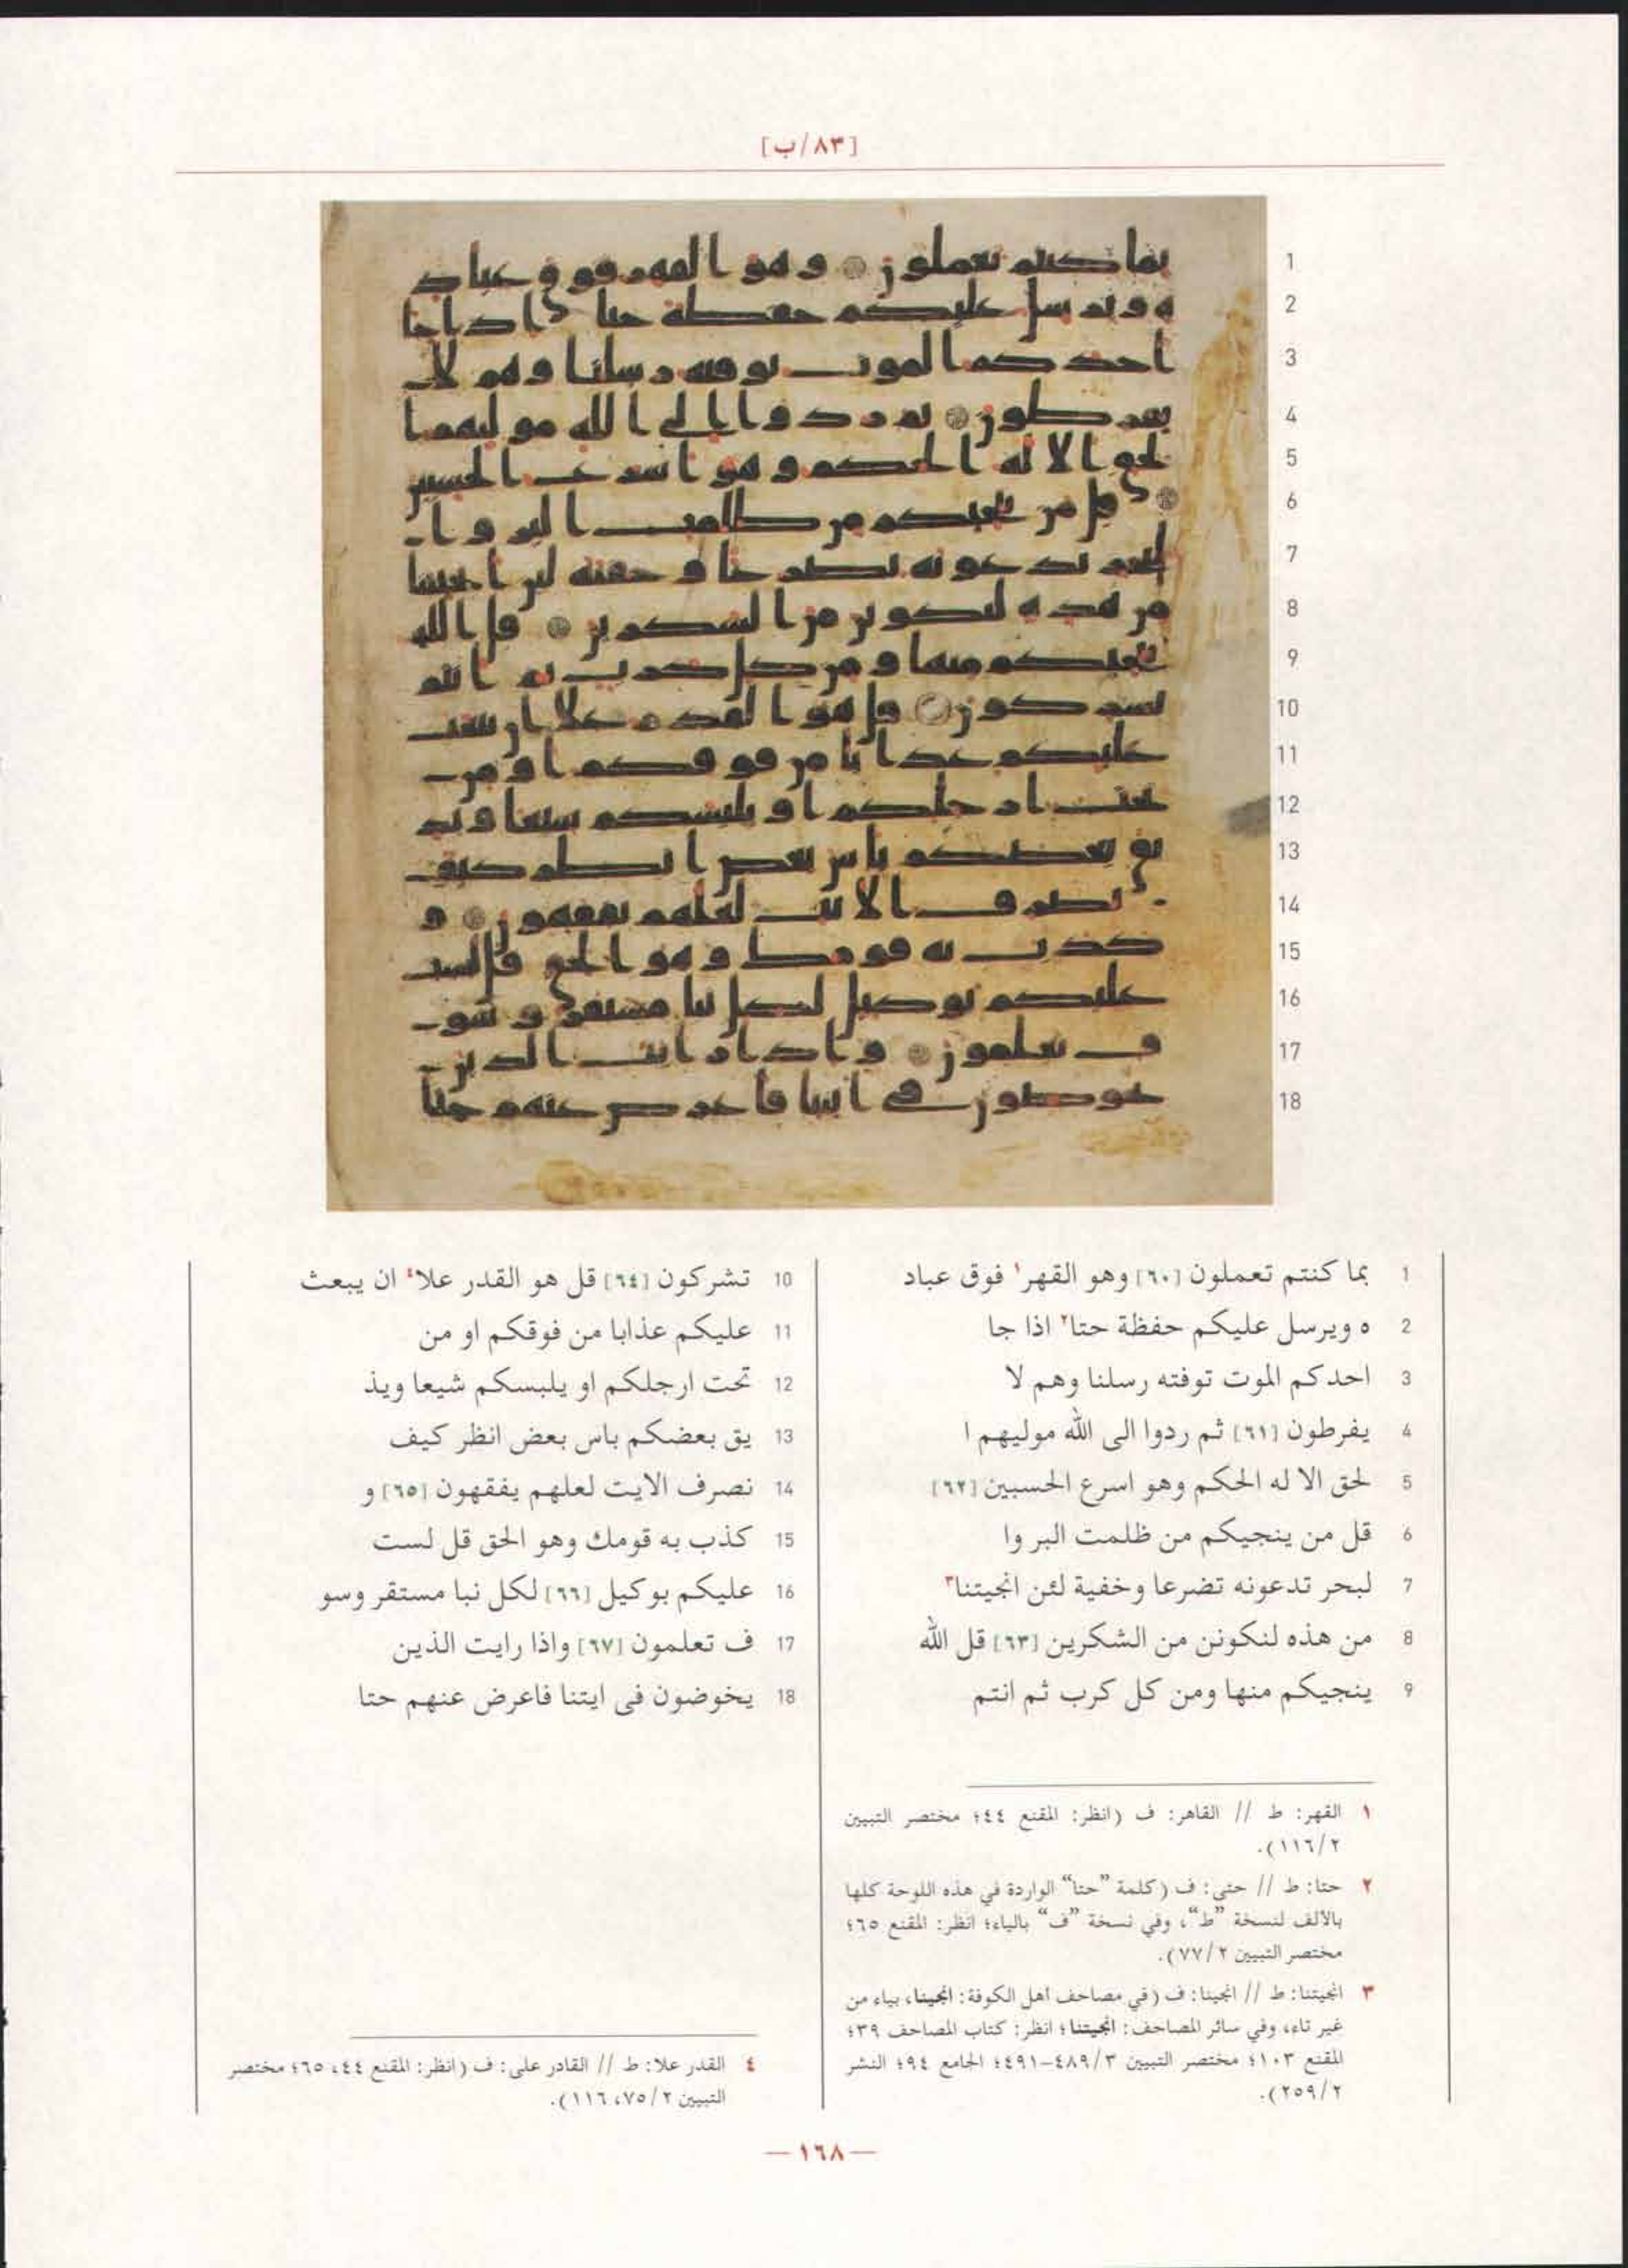 [٨٣/ب]
1 بما كنتم تعملون [٦٠] وهو القهر١ فوق عباد
2 ه ويرسل عليكم حفظة حتا٢ اذا جا
3 احدكم الموت توفته رسلنا وهم لا
4 يفرطون [٦١] ثم ردوا الى الله موليهم ا
5 لحق الا له الحكم وهو اسرع الحسبين [٦٢]
6 قل من ينجيكم من ظلمت البر وا
7 لبحر تدعونه تضرعا وخفية لئن انجيتنا٣
8 من هذه لنكونن من الشكرين [٦٣] قل الله
9 ينجيكم منها ومن كل كرب ثم انتم
10 تشركون [٦٤] قل هو القدر علا٤ ان يبعث
11 عليكم عذابا من فوقكم او من
12 تحت ارجلكم او يلبسكم شيعا ويذ
13 يق بعضكم باس بعض انظر كيف
14 نصرف الايت لعلهم يفقهون [٦٥] و
15 كذب به قومك وهو الحق قل لست
16 عليكم بوكيل [٦٦] لكل نبا مستقر وسو
17 ف تعلمون [٦٧] واذا رايت الذين
18 يخوضون في ايتنا فاعرض عنهم حتا
١ القهر: ط // القاهر: ف (انظر: المقنع ٤٤؛ مختصر التبيين
٢/١١٦).
٢ حتا: ط // حتى: ف (كلمة "حتا" الواردة في هذه اللوحة كلها
بالألف لنسخة "ط"، وفي نسخة "ف" بالياء؛ انظر: المقنع ٦٥؛
مختصر التبيين ٢/٧٧).
٣ انجيتنا: ط // انجينا: ف (في مصاحف أهل الكوفة: انجينا، بياء من
غير تاء، وفي سائر المصاحف: انجيتنا؛ انظر: كتاب المصاحف ٣٩؛
المقنع ١٠٣؛ مختصر التبيين ٣/٤٨٩–٤٩١؛ الجامع ٩٤؛ النشر
٢/٢٥٩).
٤ القدر علا: ط // القادر على: ف (انظر: المقنع ٤٤، ٦٥؛ مختصر
التبيين ٢/٧٥، ١١٦).
— ١٦٨ —